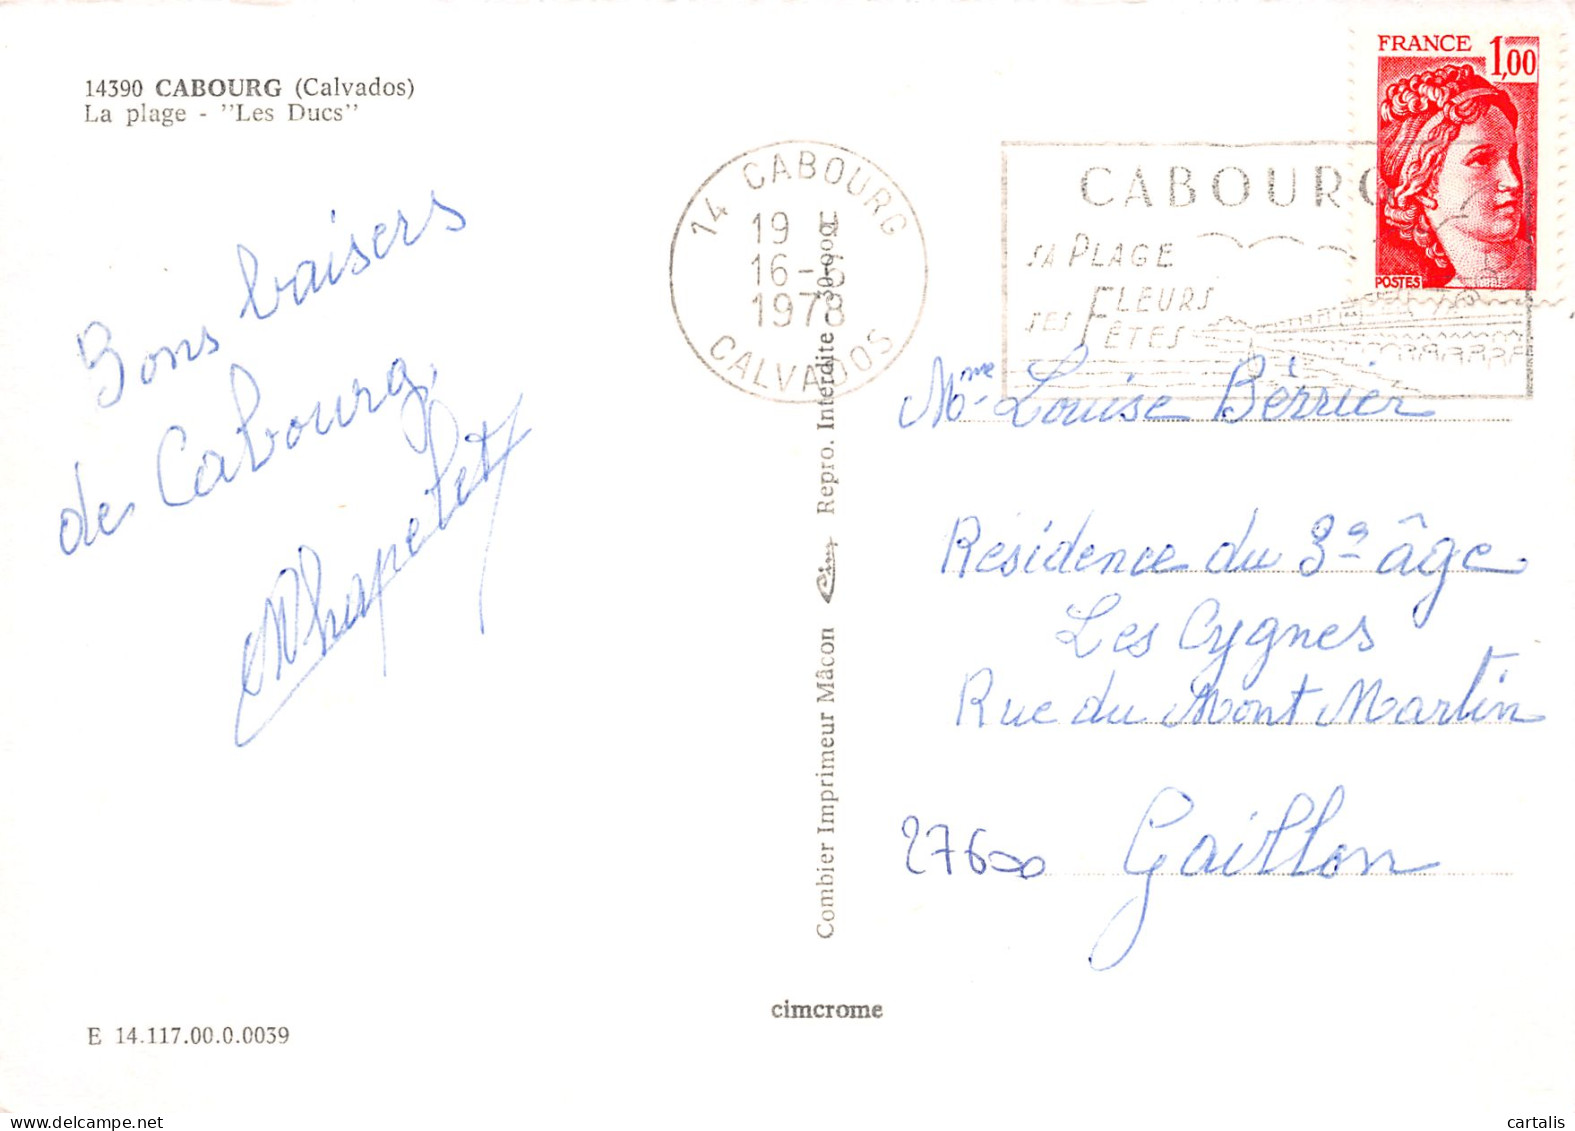 14390 CABOURG (Calvados)
La plage - "Les Ducs"
Bons baisers
de Cabourg,
14 CABOURG
19 H
16 -
1978
CALVADOS
CABOURG
SA PLAGE
SES FLEURS
FÊTES
FRANCE 1,00
POSTES
Combier Imprimeur Mâcon Cim Repro. Interdite
Mme Louise Berrier
Résidence du 3e âge
Les Cygnes
Rue du Mont Martin
27600 Gaillon
cimcrome
E 14.117.00.0.0039
cartalis
www.delcampe.net